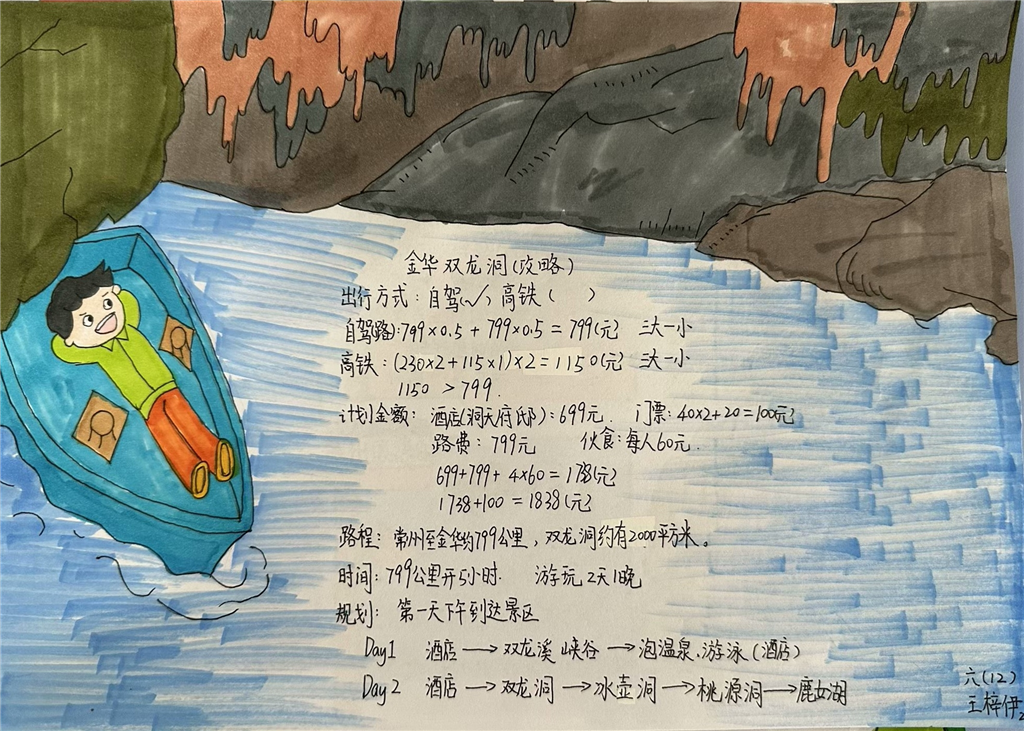 金华双龙洞(攻略)
出行方式：自驾(√) 高铁(  )
自驾(路)：799×0.5+799×0.5=799(元) 三大一小
高铁：(230×2+115×1)×2=1150(元) 三大一小
1150 > 799.
计划金额：酒店(洞天府邸)：699元. 门票：40×2+20=100元
路费：799元 伙食：每人60元.
699+799+4×60=1738(元)
1738+100=1838(元)
路程：常州至金华约799公里，双龙洞约有2000平方米。
时间：799公里开5小时. 游玩2天1晚
规划：第一天下午到达景区
Day1 酒店→双龙溪峡谷→泡温泉.游泳(酒店)
Day2 酒店→双龙洞→冰壶洞→桃源洞→鹿女湖
六(12)
王梓伊